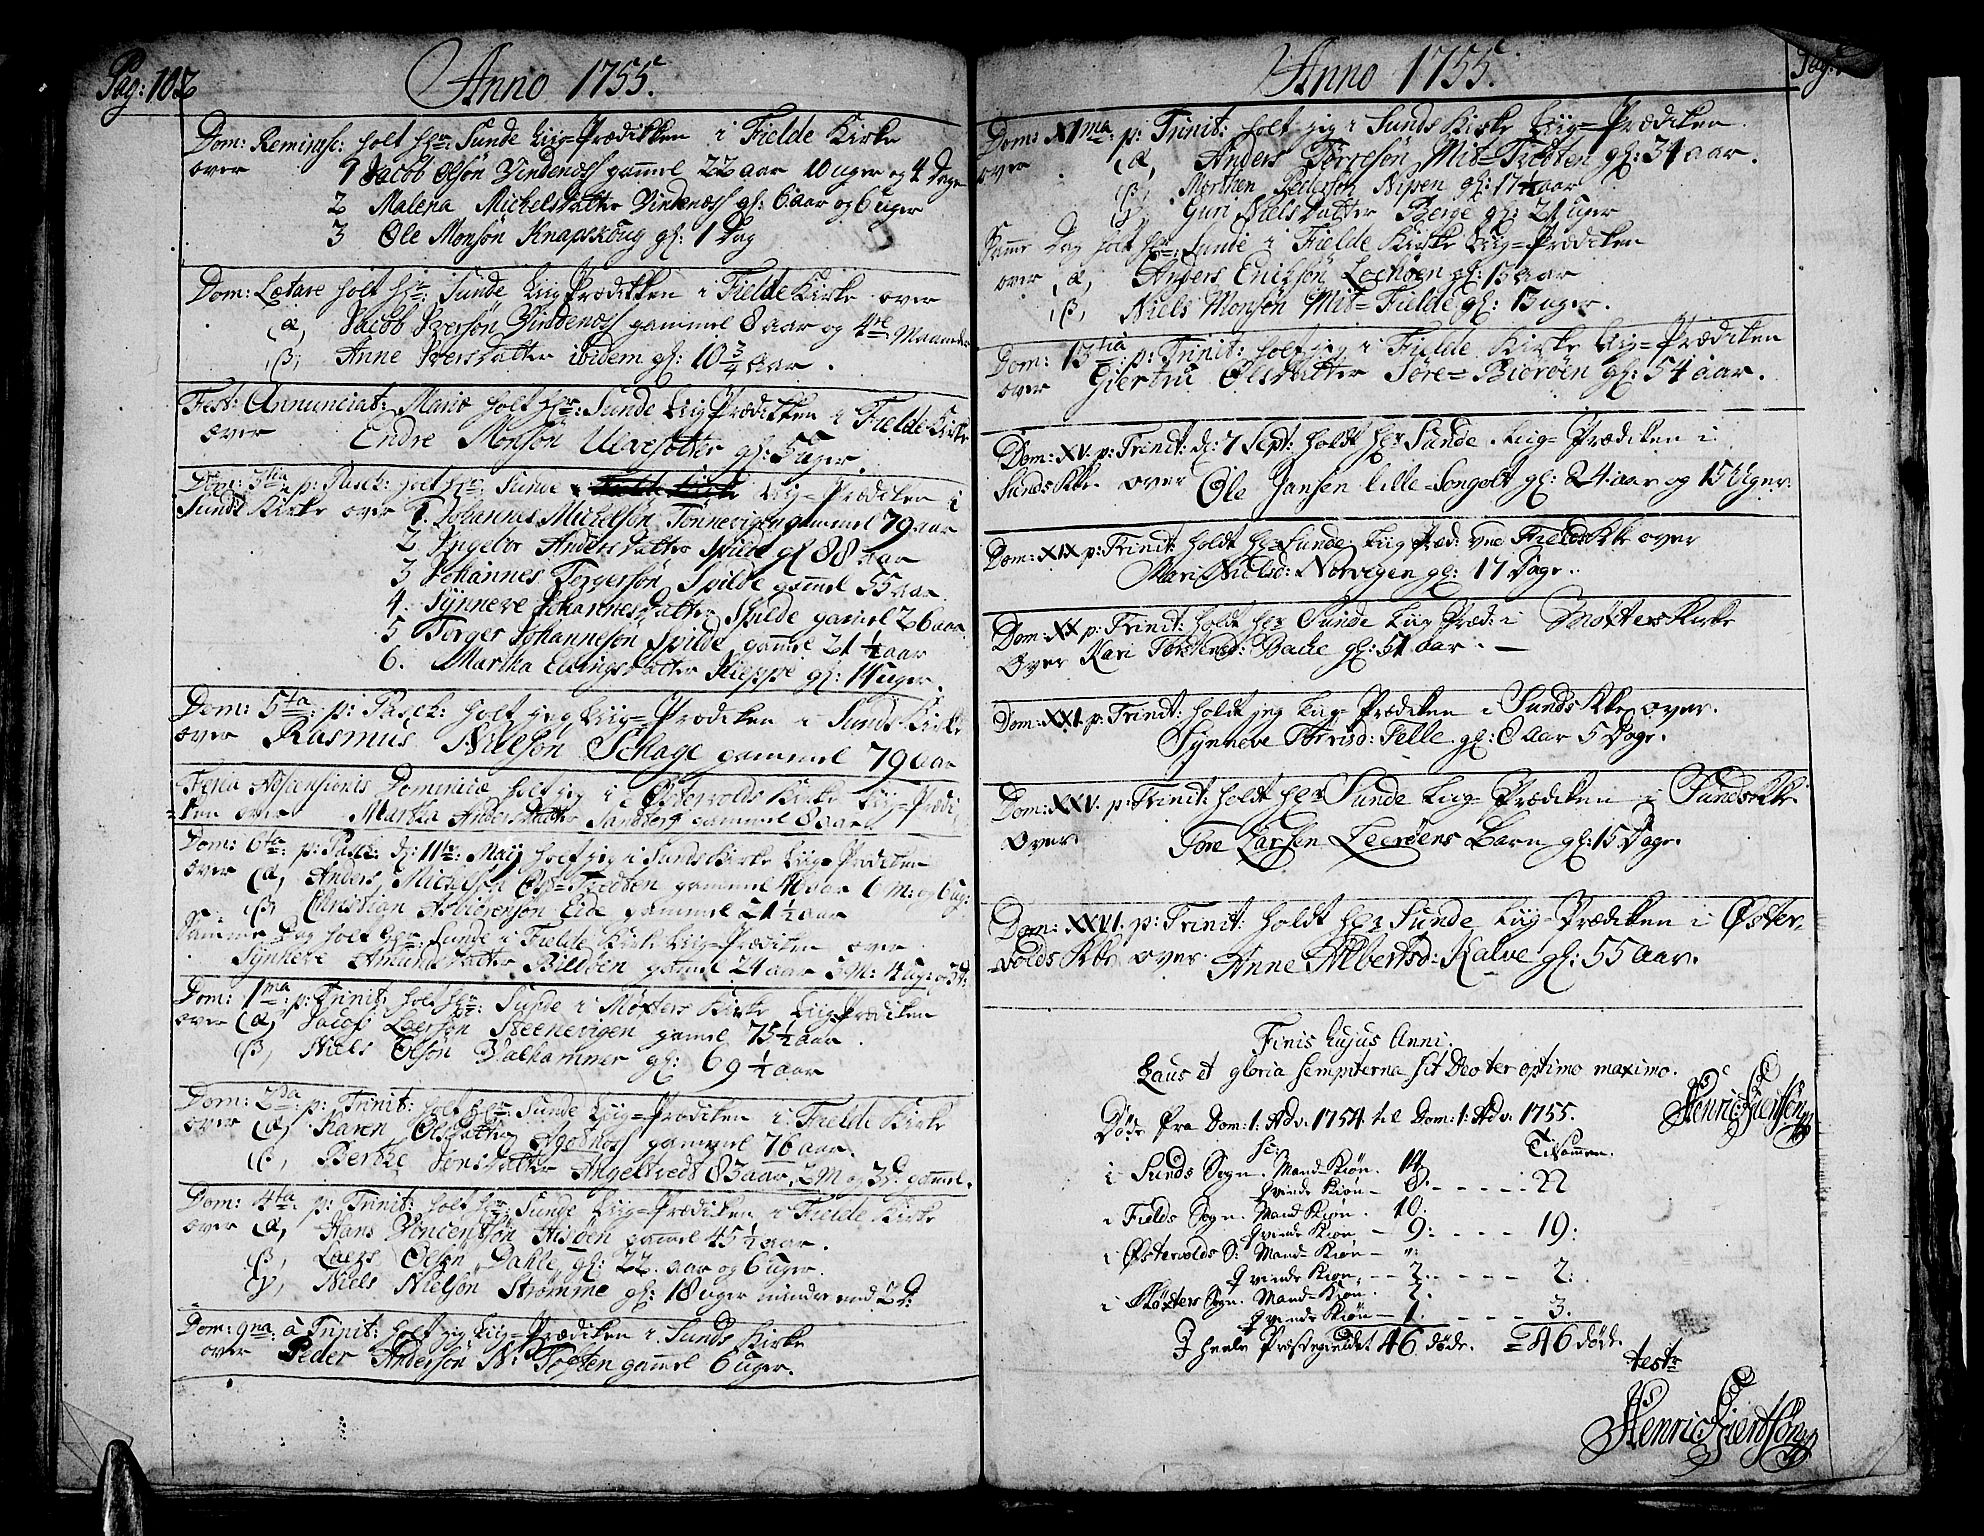 Pag: 102
Anno 1755.
Dom: Reminisc: holt Hr: Sunde Liig=Prædikken i Fielde Kirke
over 1 Jacob Olsøn Vindenæs gammel 22 aar 10 uger og 4 Dage
2 Malena Michelsdatter Vindenæs gl: 6 aar og 6 uger
3 Ole Monsøn Knapskoug gl: 1 Dag
Dom: Lætare holt Hr: Sunde Liig Prædikken i Fielde Kirke over
(α, Jacob Iversøn Vindenæs gammel 8 aar og 4re Maaneder
(β, Anne Iversdatter ibidem gl: 10 3/4 aar.
Fest: Annunciat: Mariæ holt Hr: Sunde Liig Prædikken i Fielde Kirke
over Endre Monsøn Ulvesætter gl: 5 uger.
Dom: 3tia p: Pasch: holt Hr: Sunde Liig=Prædiken i
Sunds Kirke over 1. Johannes Michelsøn Tønnevigen gammel 79 aar
2 Ingebor Andersdatter Spilde gl 88 aar
3 Johannes Torgersøn Spilde gamel 55 aar
4. Synneve Johannesdatter Spilde gamel 26 aar.
5 Torger Johannesøn Spilde gammel 21 1/2 aar
6. Martha Ellingsdatter Kleppe gl: 14 uger.
Dom: 5ta p: Pasch: holt jeg Liig=Prædiken i Sunds Kirke
over Rasmus Nielsøn Schage gammel 79 aar
Feria Ascensionis Dominicæ holt jeg i Østervolds Kirke Liig=Prædi
=ken over Martha Andersdatter Sandberg gammel 8 aar
Dom: 6ta p: Pasch: d: 11te Maij holt jeg i Sunds Kirke Liig=Prædiken
over (α, Anders Michelsøn Toften gammel aar 6 M: og 6 ug:
(β, Christian Eide gammel 21 1/2 aar
Samme Dag holt Hr: Sunde i Fielde Kirke Liig=Prædiken over
Synneve Amundsdatter Bildøen gamel 24 aar 3 M: 4 ug:
Dom: 1ma p: Trinit: holt Hr: Sunde i Møxters Kirke Liig Prædiken
over (α, Jacob Laersøn Steenevigen gamel 75 1/2 aar
(β, Niels Olsøn Valhammer gl: 69 1/2 aar
Dom: 2da p: Trinit: holt Hr: Sunde Liig=Prædiken i Fielde Kirke
over (α, Karen Olsdatter Agotnes gammel 76 aar.
(β, Berthe Jonsdatter Angeltvedt 83 aar, 2 M og 3 D. gamel.
Dom: 4ta p: Trinit: holt Hr: Sunde Liig=Prædiken i Fielde Kirke
over (α, Hans Vincentsøn Hisøen gamel 45 1/2 aar.
(β, Laers Olsøn Dahle gl: 22 aar og 6 uger.
(γ, Niels Nielsøn Strømme gl: 18 uger mindre end 2 D:
Dom: 9na à Trinit: holt jeg Liig=Prædiken i Sunds Kirke
over Peder Andersøn N: Toften gamel 6 uger.
Pag:
Anno 1755.
Dom: XIma p: Trinit: holt jeg i Sunds Kirke Liig=Prædiken
over (α, Anders Torresøn Mit=Tveten gl: 34 aar.
(β, Morthen Pedersøn Nipen gl: 17 1/2 aar
(γ, Guri Nielsdatter Berge gl: 21 uger
Samme Dag holt Hr: Sunde i Fielde Kirke Liig=Prædiken
over (α, Anders Erichsøn Lochøen gl: 13 aar
(β, Niels Monsøn Mit=Fielde gl: 13 uger.
Dom: 13tia p: Trinit: holt jeg i Fielde Kirke Liig=Prædiken
over Giertru Olsdatter Tore=Biorøen gl: 54 aar.
Dom: XV. p: Trinit: d: 7 Sept: holdt Hr Sunde Liig=Prædiken i
Sunds Kke over Ole Jansen Lille=Songolt gl: 24 aar og 15 Uger.
Dom: XIX p: Trinit: holdt Hr Sunde Liig Præd: ved Fields Kke over
Mari Nielsd: Norvigen gl: 17 Dage.
Dom: XX p: Trinit: holdt Hr Sunde Liig Præd: i Møxters Kirke
Over Kari Torstensd: Bache gl: 51 aar. —
Dom: XXI. p: Trinit: holdt jeg Liig Prædiken i Sunds Kke over.
Synneve Torrisd: Telle gl: 8 aar 5 Dage.
Dom: XXV. p: Trinit: holdt Hr Sunde Liig=Prædiken i Sunds Kke
Over. Tore Larsen Leerøens Barn gl: 15 Dage.
Dom: XXVI. p: Trinit: holdt Hr Sunde Liig=Prædiken i Øster,
=volds Kke over Anne Albertsd: Kalve gl: 55 aar.
Finis hujus Anni.
Laus et gloria sempiterna sit Deo ter optimo maximo.
Henric Giertsøn
Døde fra Dom: 1. Adv: 1754 til Dom: 1. Adv. 1755.
Tilsamen.
i Sunds Sogn. Mand=Kiøn. 14.
Qvinde Kiøn — 8. - - - - 22
i Fields Sogn. Mand Kiøn. 10.
Qvinde Kiøn — 9: - - - - 19:
i Østervolds S: Mand=Kiøn — ":
Qvinde Kiøn, - - 2. - - - - 2:
i Møxters Sogn. Mand=Kiøn. 2.
Qvinde Kiøn — 1. - - - - 3.
I heele Præstegieldet 46 døde. = 46 døde.
test:
Henric Giertsøn